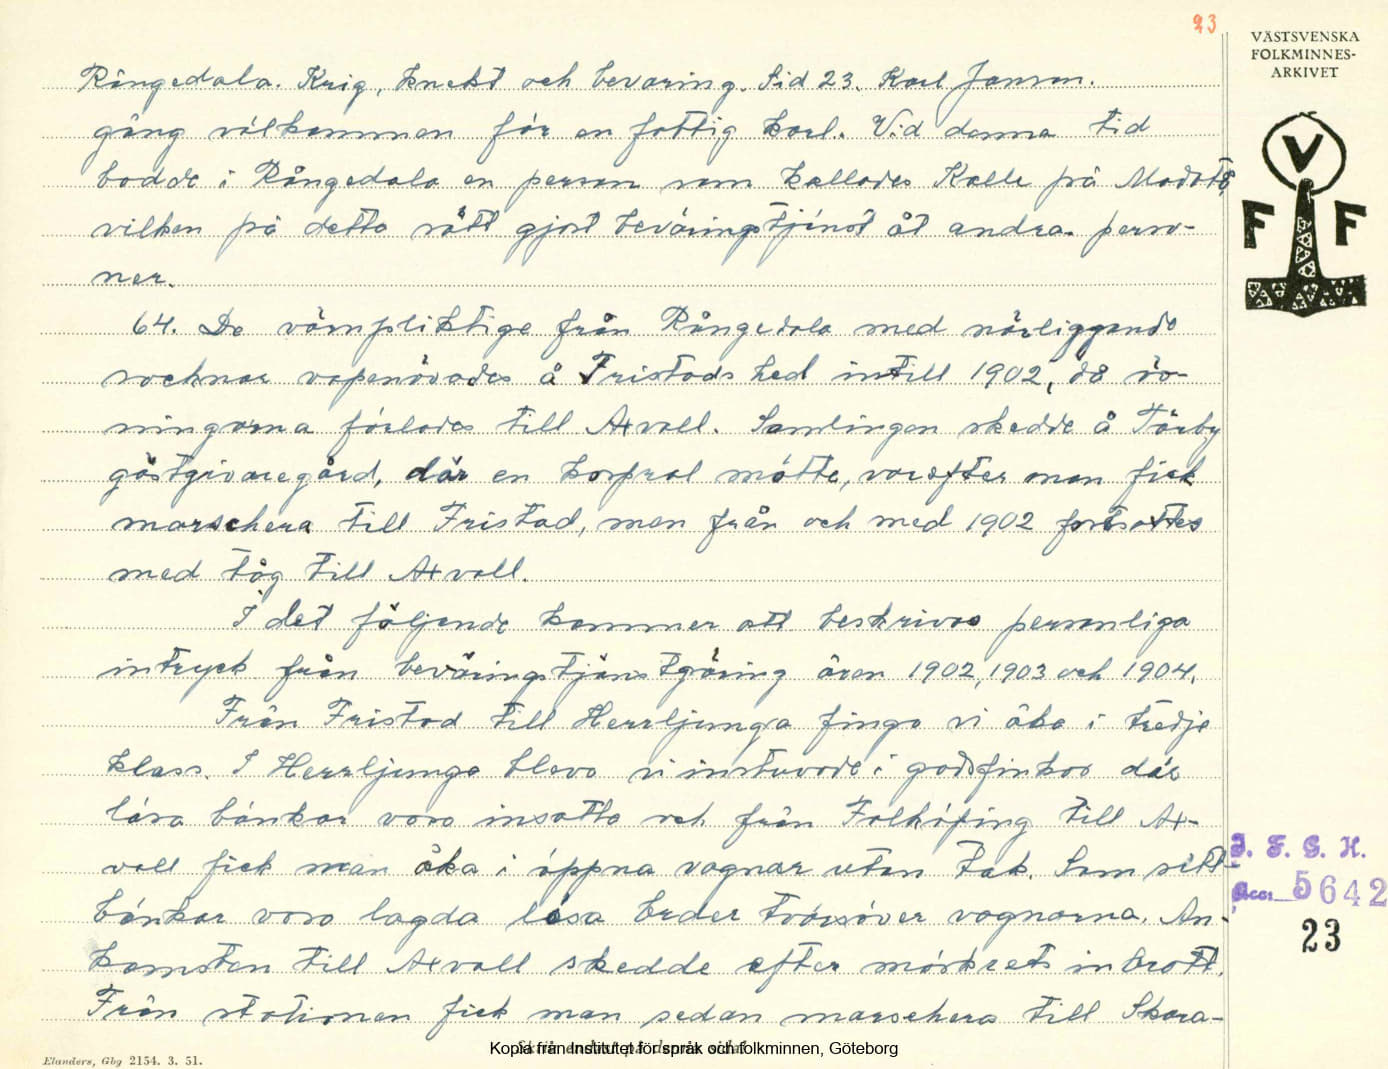 23
VÄSTSVENSKA
FOLKMINNES-
ARKIVET
V
F F
Rångedala. Krig, knekt och bevaring. Sid 23. Karl Janson.
gång välkommen för en fattig karl. Vid denna tid
bodde i Rångedala en person som kallades Kalle på
vilken på detta sätt gjort beväringstjänst åt andra perso-
ner.
64. De värnpliktige från Rångedala med närliggande
socknar vapenövades å Fristads hed intill 1902, då öv-
ningarna förlades till Axvall. Samlingen skedde å Tärby
gästgivaregård, där en korpral mötte, varefter man fick
marschera till Fristad, men från och med 1902 fortsattes
med tåg till Axvall.
I det följande kommer att beskrivas personliga
intryck från beväringstjänstgöring åren 1902, 1903 och 1904.
Från Fristad till Herrljunga fingo vi åka i tredje
klass. I Herrljunga blevo vi instuvade i godsfinkor där
lösa bänkar voro insatta och från Falköping till Ax-
vall fick man åka i öppna vagnar utan tak. Som sitt-
bänkar voro lagda lösa bräder tvärsöver vagnarna. An-
komsten till Axvall skedde efter mörkrets inbrott.
Från stationen fick man sedan marschera till Skara-
I. F. G. H.
Acc. 5642
23
Elanders, Gbg 2154. 3. 51.
Kopia från Institutet för språk och folkminnen, Göteborg